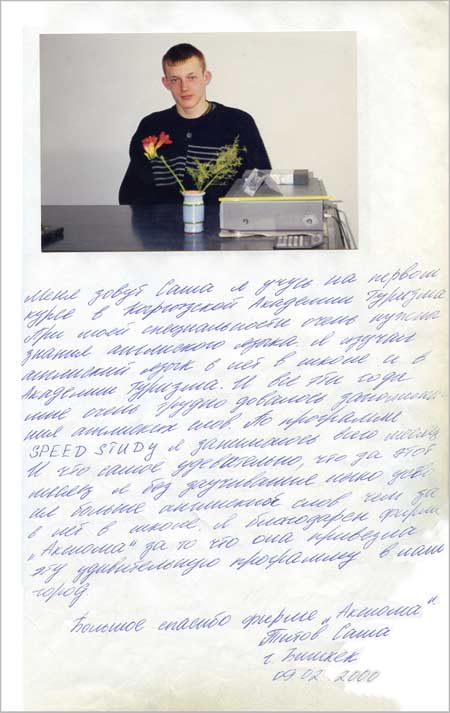 Меня зовут Саша я учусь на первом
курсе в Кыргызской Академии Туризма
При моей специальности очень нужны
знания английского языка. Я изучал
английский язык 8 лет в школе и в
Академии Туризма. И все эти годы
мне очень трудно довалось запомина-
ния английских слов. По программе
SPEED STUDY я занимаюсь всего месяц
И что самое удевательно, что за этот
месяц я без заучивание легко усво
ил больше английских слов чем за
8 лет в школе. Я благодарен фирме
„Аксиома" за то что она привезла
эту удивительную программу в наш
город.
Большое спасибо фирме „Аксиома".
Титов Саша
г. Бишкек
09 02 2000